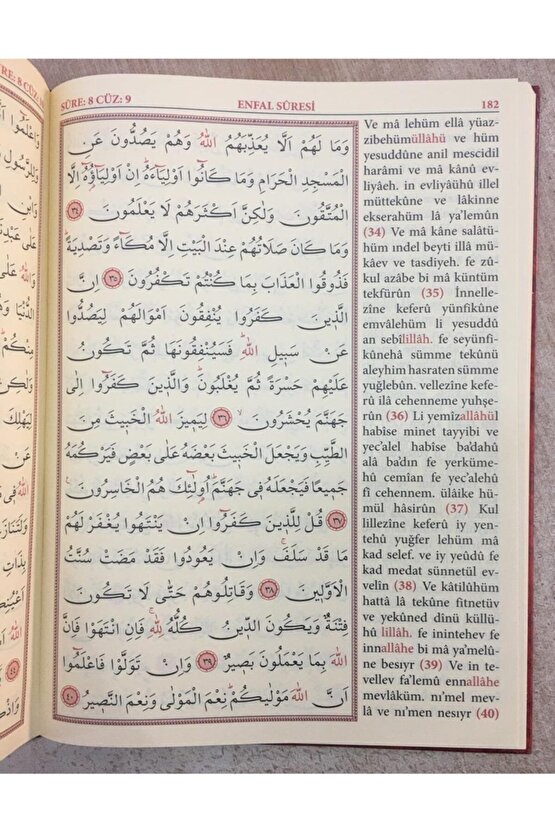 SÛRE: 8 CÜZ: 9 ENFAL SÛRESİ 182
وَمَا لَهُمْ اَلَّا يُعَذِّبَهُمُ اللّٰهُ وَهُمْ يَصُدُّونَ عَنِ
الْمَسْجِدِ الْحَرَامِ وَمَا كَانُٓوا اَوْلِيَٓاءَهُۜ اِنْ اَوْلِيَٓاؤُ۬هُٓ اِلَّا
الْمُتَّقُونَ وَلٰكِنَّ اَكْثَرَهُمْ لَا يَعْلَمُونَ ﴿٣٤﴾
وَمَا كَانَ صَلَاتُهُمْ عِنْدَ الْبَيْتِ اِلَّا مُكَٓاءً وَتَصْدِيَةًۜ
فَذُوقُوا الْعَذَابَ بِمَا كُنْتُمْ تَكْفُرُونَ ﴿٣٥﴾ اِنَّ
الَّذِينَ كَفَرُوا يُنْفِقُونَ اَمْوَالَهُمْ لِيَصُدُّوا
عَنْ سَبِيلِ اللّٰهِۜ فَسَيُنْفِقُونَهَا ثُمَّ تَكُونُ
عَلَيْهِمْ حَسْرَةً ثُمَّ يُغْلَبُونَۜ وَالَّذِينَ كَفَرُٓوا اِلٰى
جَهَنَّمَ يُحْشَرُونَۙ ﴿٣٦﴾ لِيَمِيزَ اللّٰهُ الْخَبِيثَ مِنَ
الطَّيِّبِ وَيَجْعَلَ الْخَبِيثَ بَعْضَهُ عَلٰى بَعْضٍ فَيَرْكُمَهُ
جَمِيعًا فَيَجْعَلَهُ فِي جَهَنَّمَۜ اُو۬لٰٓئِكَ هُمُ الْخَاسِرُونَ۟
﴿٣٧﴾ قُلْ لِلَّذِينَ كَفَرُٓوا اِنْ يَنْتَهُوا يُغْفَرْ لَهُمْ
مَا قَدْ سَلَفَۚ وَاِنْ يَعُودُوا فَقَدْ مَضَتْ سُنَّتُ
الْاَوَّلِينَ ﴿٣٨﴾ وَقَاتِلُوهُمْ حَتّٰى لَا تَكُونَ
فِتْنَةٌ وَيَكُونَ الدِّينُ كُلُّهُ لِلّٰهِۚ فَاِنِ انْتَهَوْا فَاِنَّ
اللّٰهَ بِمَا يَعْمَلُونَ بَصِيرٌ ﴿٣٩﴾ وَاِنْ تَوَلَّوْا فَاعْلَمُٓوا
اَنَّ اللّٰهَ مَوْلٰيكُمْۜ نِعْمَ الْمَوْلٰى وَنِعْمَ النَّصِيرُ ﴿٤٠﴾
Ve mâ lehüm ellâ yüaz-
zibehümüllâhü ve hüm
yesuddûne anil mescidil
harâmi ve mâ kânû ev-
liyâeh. in evliyâühû illel
müttekûne ve lâkinne
ekserahüm lâ ya'lemûn
(34) Ve mâ kâne salatü-
hüm ındel beyti illâ mü-
kâev ve tasdiyeh. fe zû-
kul azâbe bi mâ küntüm
tekfürûn (35) İnnelle-
zîne keferû yünfikûne
emvâlehüm li yesuddû
an sebîlillâh. fe seyünfi-
kûnehâ sümme tekûnü
aleyhim hasraten sümme
yuğlebûn. vellezîne kefe-
rû ilâ cehenneme yuhşe-
rûn (36) Li yemîzallâhül
habîse minet tayyibi ve
yec'alel habîse ba'dahû
alâ ba'dın fe yerküme-
hû cemîan fe yec'alehû
fî cehennem. ülâike hü-
mül hâsirûn (37) Kul
lillezîne keferû iy yen-
tehû yuğfer lehüm mâ
kad selef. ve iy yeûdû fe
kad medat sünnetül ev-
velîn (38) Ve kâtilûhüm
hattâ lâ tekûne fitnetüv
ve yekûned dînü küllü-
hû lillâh. fe inintehev fe
innallâhe bi mâ ya'melû-
ne besıyr (39) Ve in te-
vellev fa'lemû ennallâhe
mevlâküm. ni'mel mev-
lâ ve nı'men nesıyr (40)